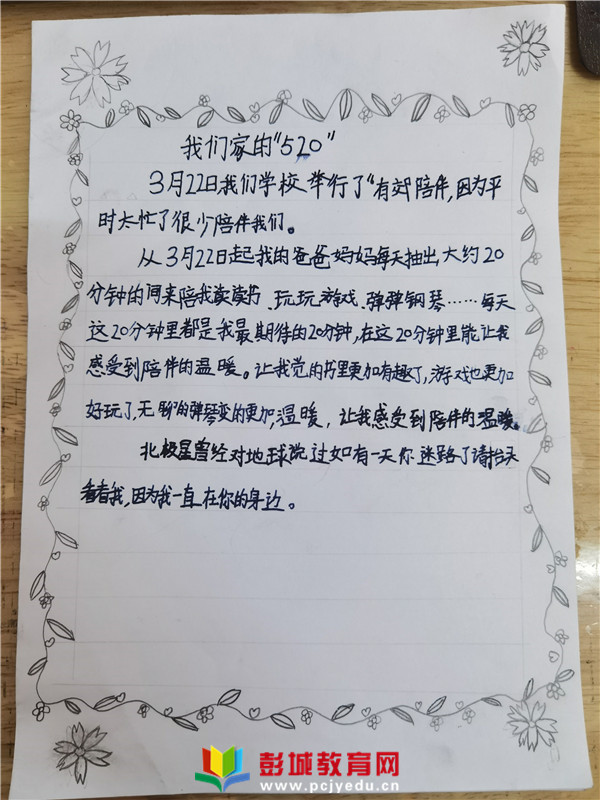 我们家的"520"
3月22日我们学校举行了"有效陪伴,因为平
时太忙了很少陪伴我们。
从3月22日起我的爸爸妈妈每天抽出大约20
分钟的间来陪我读读书、玩玩游戏、弹弹钢琴……每天
这20分钟里都是我最期待的20分钟,在这20分钟里能让我
感受到陪伴的温暖。让我觉的书里更加有趣了,游戏也更加
好玩了,无聊的弹琴变的更加温暖,让我感受到陪伴的温暖。
北极星曾经对地球说过如有一天你迷路了请抬头
看看我,因为我一直在你的身边。
彭城教育网
www.pcjyedu.cn